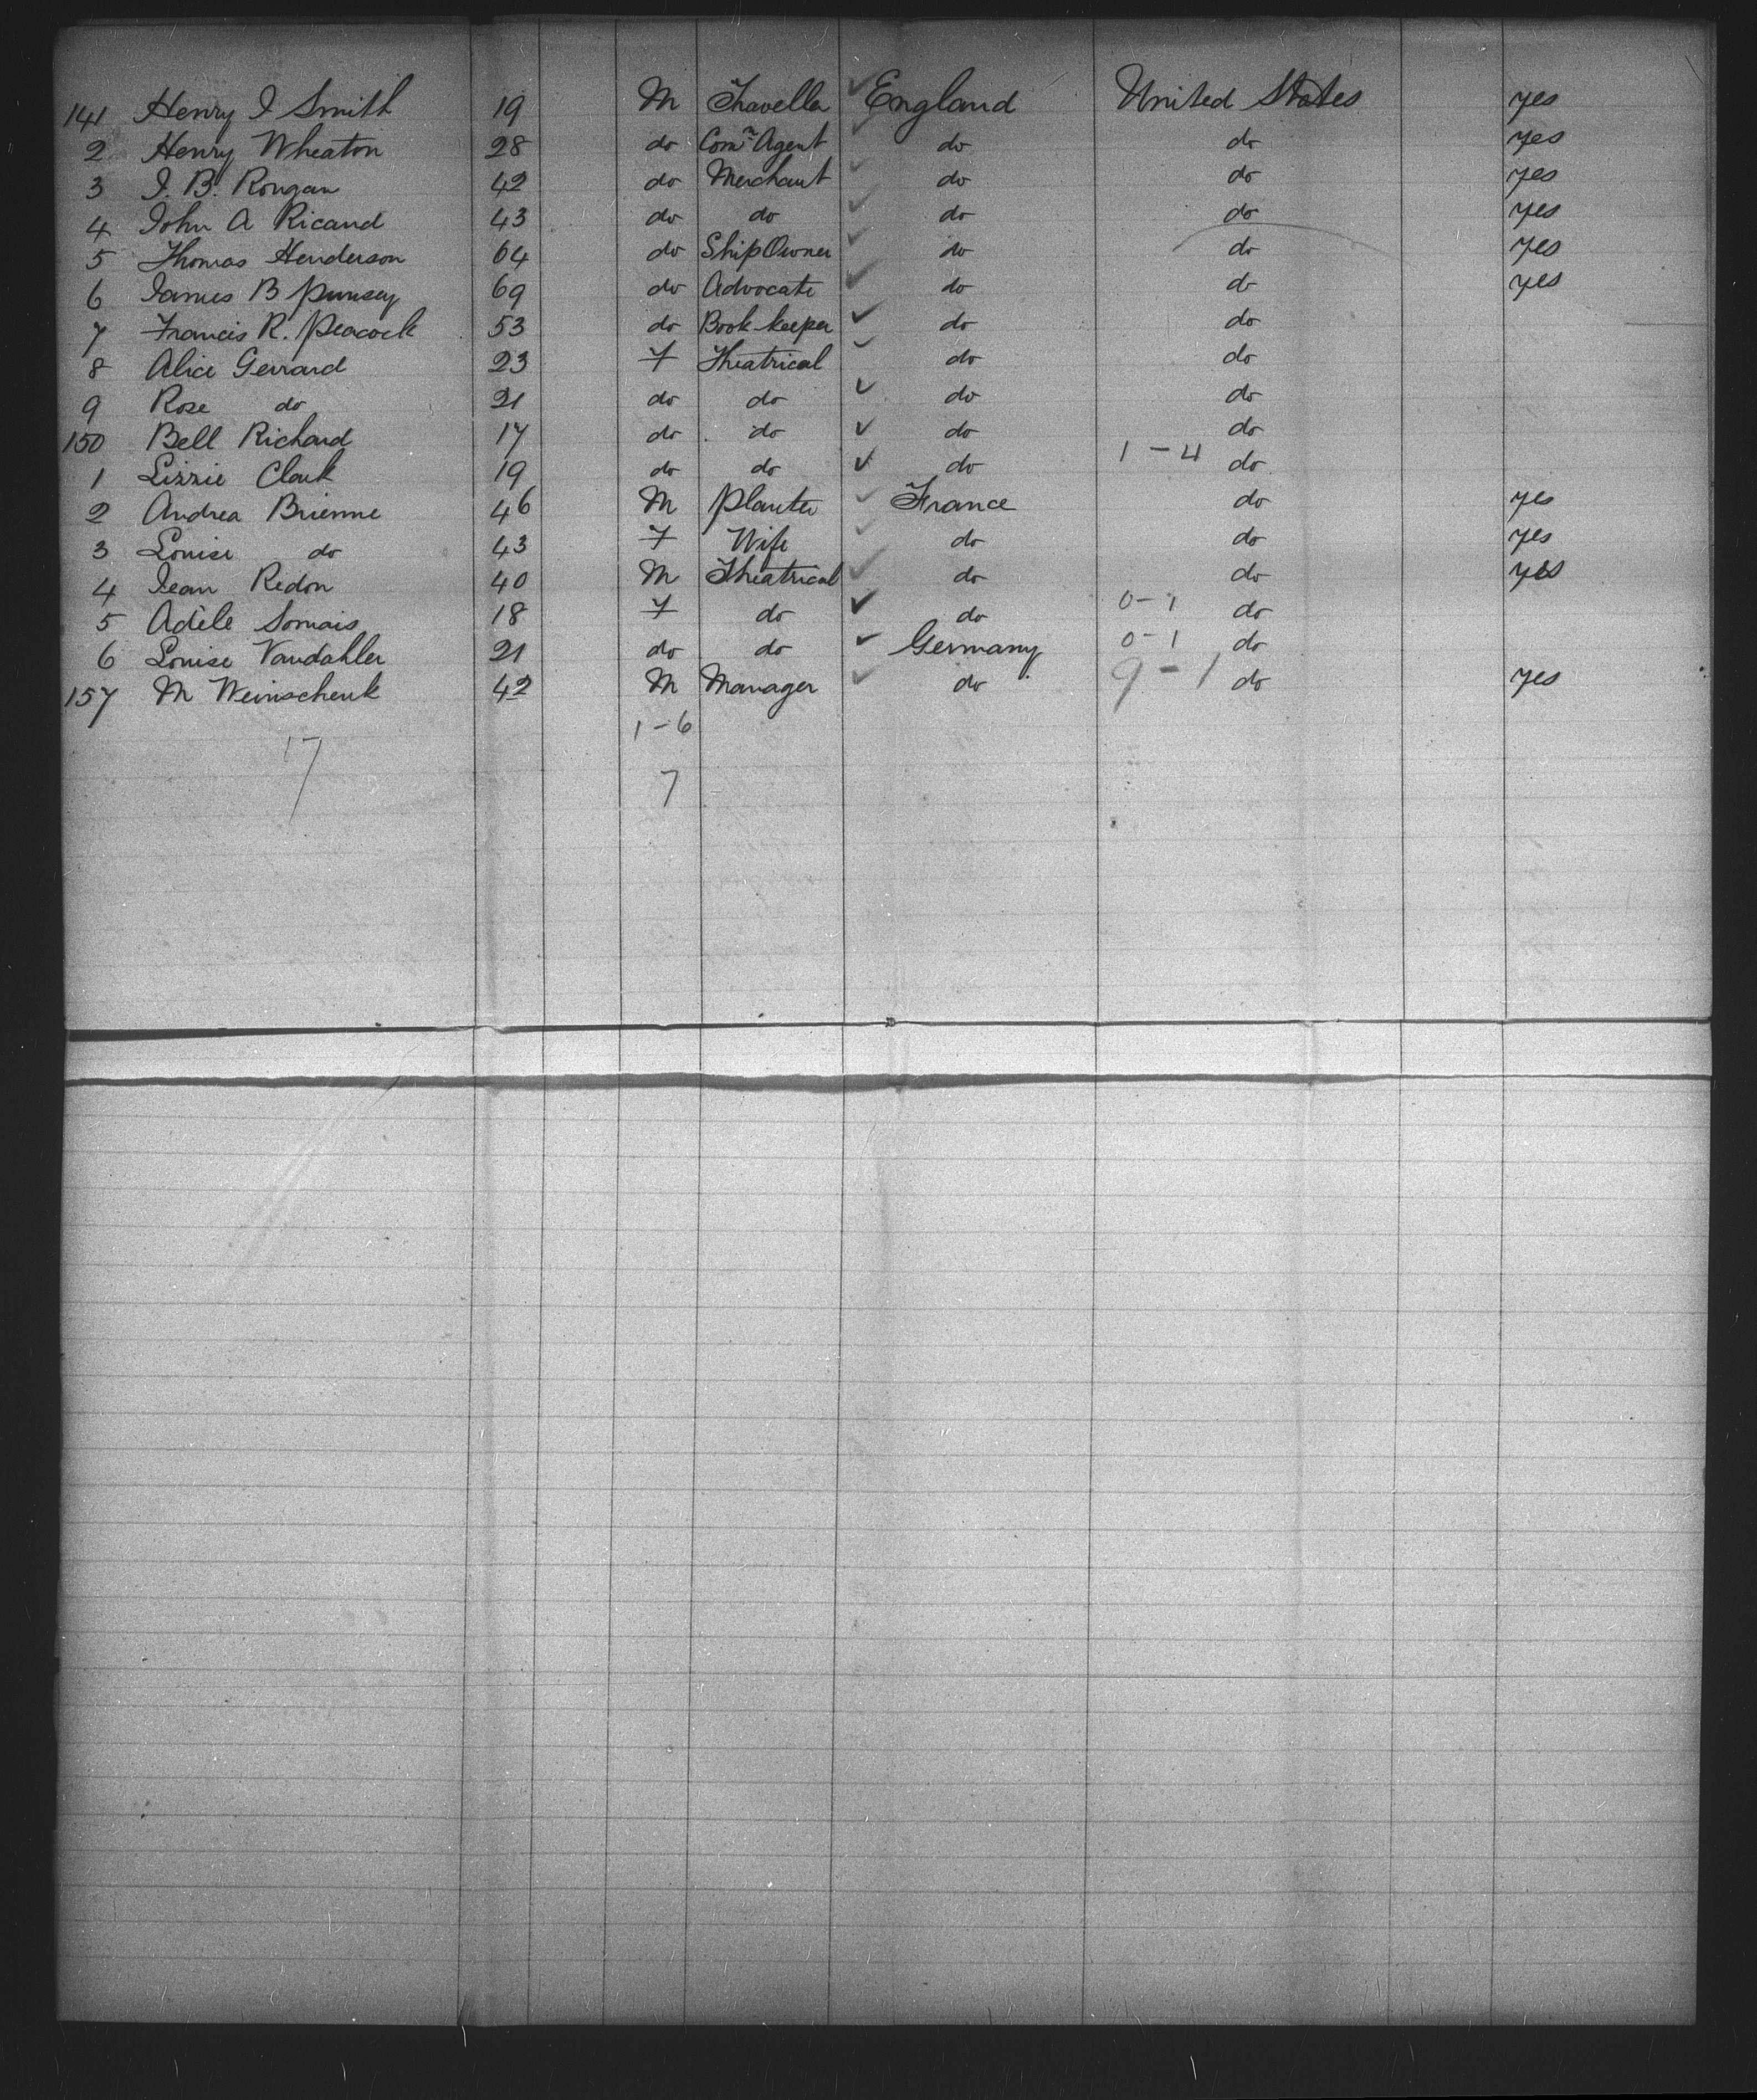 141 Henry I Smith 19 M Traveller England United States yes
2 Henry Wheaton 28 do Comn Agent do do yes
3 I. B. Rougan 42 do Merchant do do yes
4 John A Ricand 43 do do do do yes
5 Thomas Henderson 64 do Ship Owner do do yes
6 James B Pumsey 69 do Advocate do do yes
7 Francis R. Peacock 53 do Book-keeper do do
8 Alice Gerrard 23 F Theatrical do do
9 Rose do 21 do do do do
150 Bell Richard 17 do do do do
1 Lizzie Clark 19 do do do 1-4 do
2 Andrea Brienne 46 M Planter France do yes
3 Louise do 43 F Wife do do yes
4 Jean Redon 40 M Theatrical do do yes
5 Adèle Somais 18 F do do 0-1 do
6 Louise Vandahler 21 do do Germany 0-1 do
157 M Weinschenk 42 M Manager do 9-1 do yes
1-6
17 7